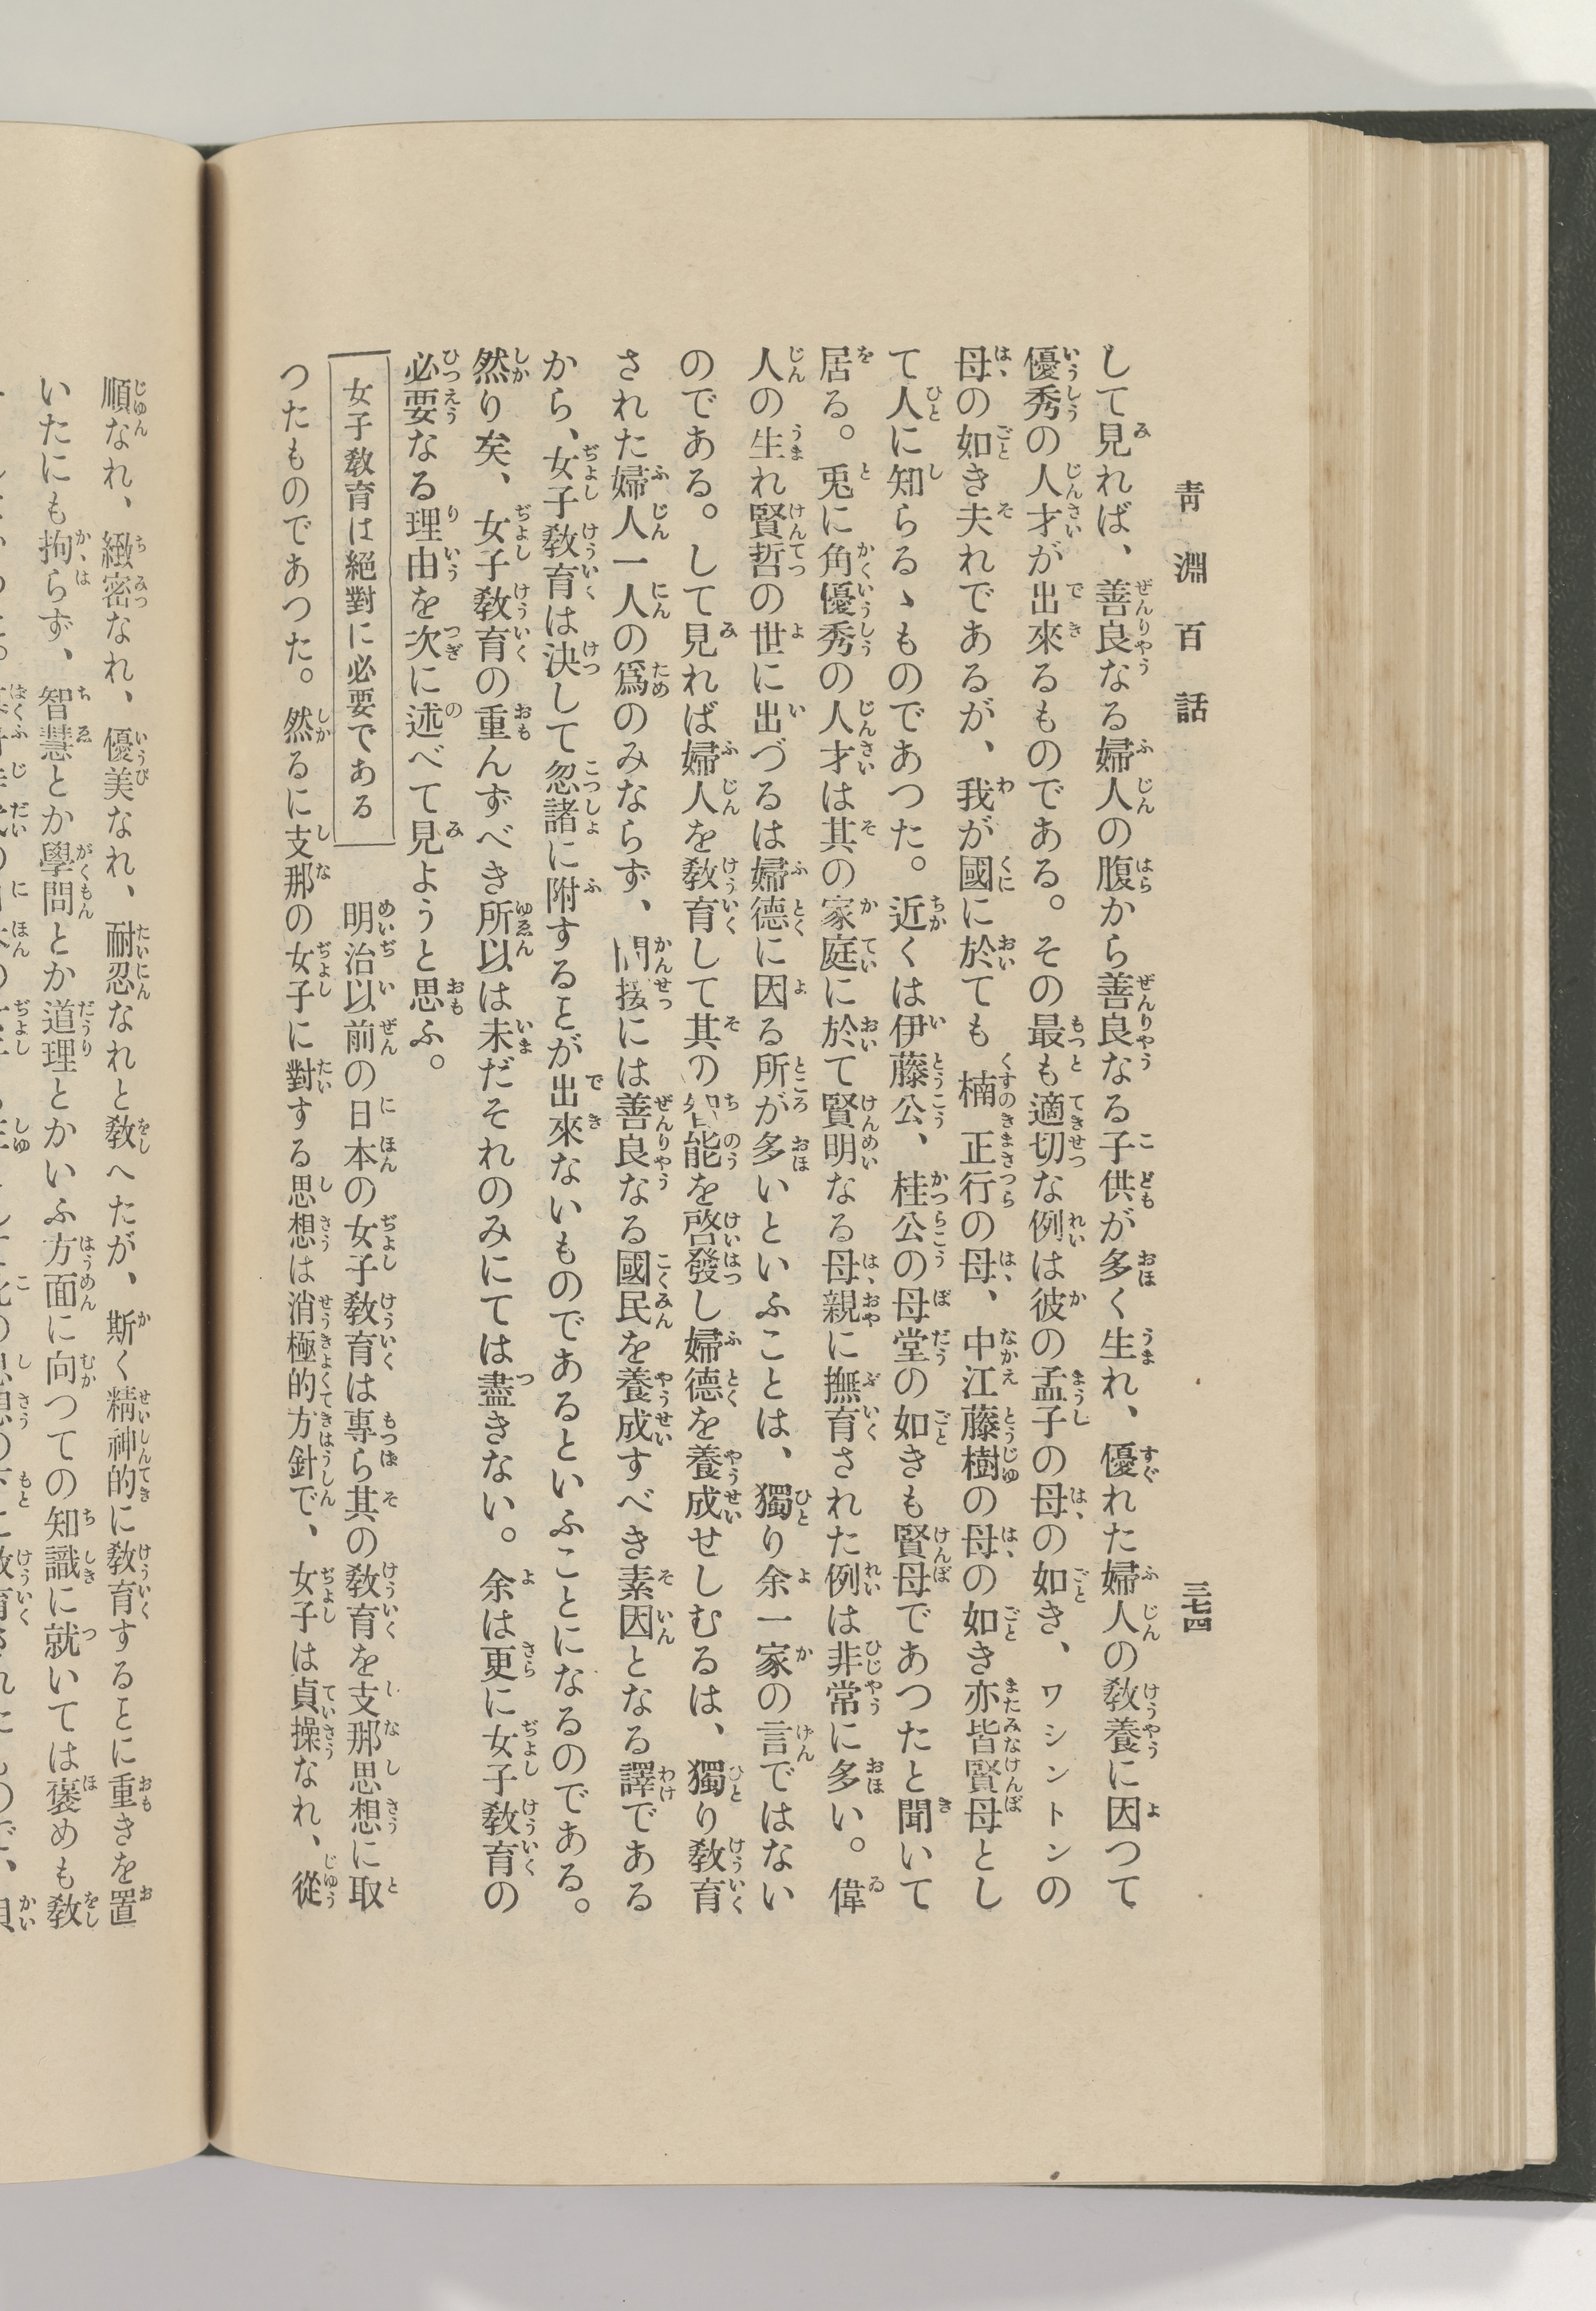 靑淵百話
三七四
して見れば、善良なる婦人の腹から善良なる子供が多く生れ、優れた婦人の敎養に因つて
優秀の人才が出來るものである。その最も適切な例は彼の孟子の母の如き、ワシントンの
母の如き夫れであるが、我が國に於ても楠正行の母、中江藤樹の母の如き亦皆賢母とし
て人に知らるゝものであつた。近くは伊藤公、桂公の母堂の如きも賢母であつたと聞いて
居る。兎に角優秀の人才は其の家庭に於て賢明なる母親に撫育された例は非常に多い。偉
人の生れ賢哲の世に出づるは婦德に因る所が多いといふことは、獨り余一家の言ではない
のである。して見れば婦人を敎育して其の智能を啓發し婦德を養成せしむるは、獨り敎育
された婦人一人の爲のみならず、間接には善良なる國民を養成すべき素因となる譯である
から、女子敎育は決して忽諸に附することが出來ないものであるといふことになるのである。
然り矣、女子敎育の重んずべき所以は未だそれのみにては盡きない。余は更に女子敎育の
必要なる理由を次に述べて見ようと思ふ。
女子敎育は絕對に必要である　明治以前の日本の女子敎育は專ら其の敎育を支那思想に取
つたものであつた。然るに支那の女子に對する思想は消極的方針で、女子は貞操なれ、從
順なれ、緻密なれ、優美なれ、耐忍なれと敎へたが、斯く精神的に敎育することに重きを置
いたにも拘らず、智慧とか學問とか道理とかいふ方面に向つての知識に就いては褒めも敎